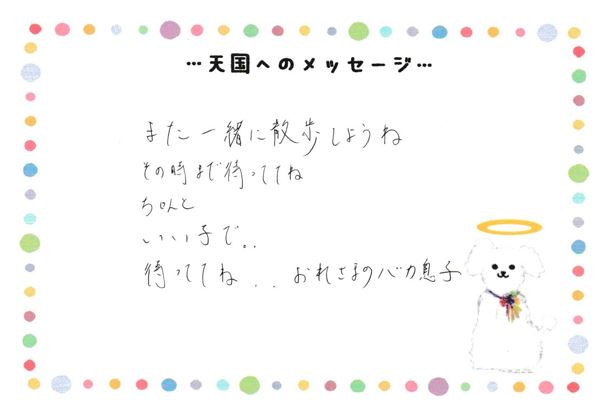 …天国へのメッセージ…
また一緒に散歩しようね
その時まで待っててね
ちゃんと
いい子で..
待っててね．．おれさまのバカ息子